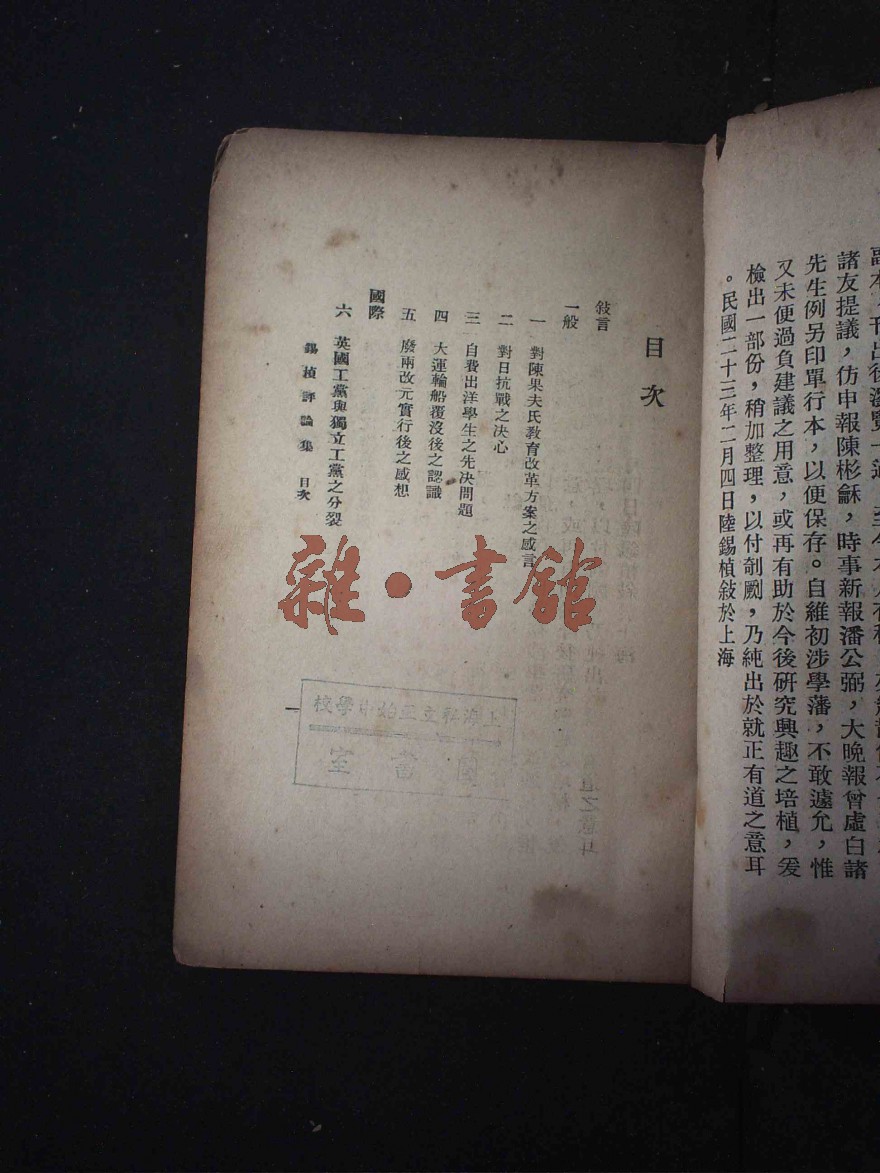 諸友提議，仿申報陳彬龢，時事新報潘公弼，大晚報曾虛白諸
先生例另印單行本，以便保存。自維初涉學藩，不敢遽允，惟
又未便過負建議之用意，或再有助於今後研究興趣之培植，爰
檢出一部份，稍加整理，以付剞劂，乃純出於就正有道之意耳
。民國二十三年二月四日陸錫楨敍於上海
目次
敍言
一般
一 對陳果夫氏教育改革方案之感言
二 對日抗戰之決心
三 自費出洋學生之先決問題
四 大運輪船覆沒後之認識
五 廢兩改元實行後之感想
國際
六 英國工黨與獨立工黨之分裂
錫楨評論集 目次
一
雜·書館
上海 中學校
圖書室